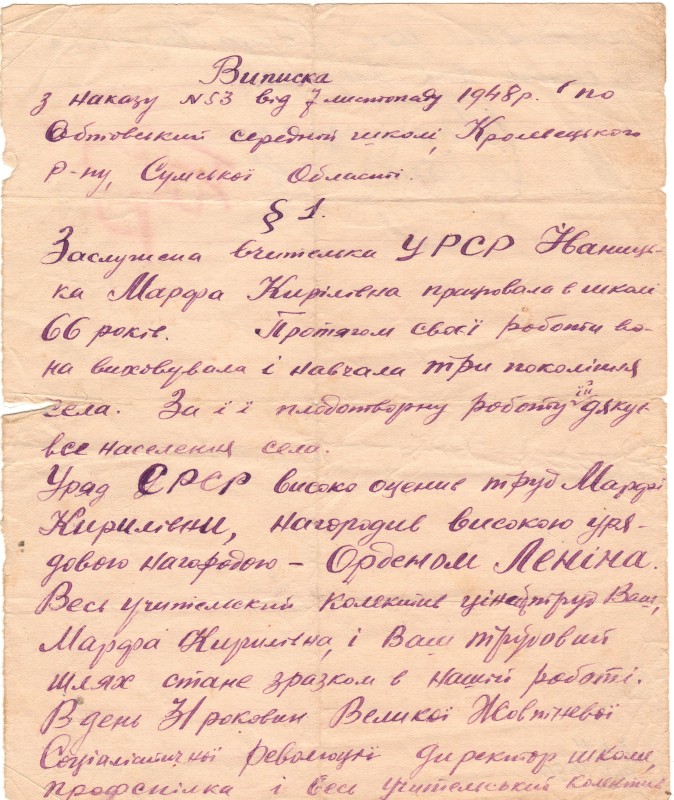 Виписка
з наказу №53 від 7 листопаду 1948 р. по
Обтовський середній школі, Кролевецького
р-ну, Сумської Області.
§ 1.
Заслужена вчителька УРСР Іваниць-
ка Марфа Кирілівна працювала в школі
66 років. Протягом своєї роботи во-
на виховувала і навчала три покоління
села. За її плодотворну роботу їй дякує
все населення села.
Уряд СРСР високо оценив труд Марфи
Кирилівни, нагородив високою уря-
довою нагородою – Орденом Леніна.
Весь учительский колектив цінить труд Ваш,
Марфа Кирилівна, і Ваш трудовий
шлях стане зразком в нашій роботі.
В день 31 роковин Великої Жовтневої
Соціалістичної революції директор школи,
профспілка і весь учительський колектив